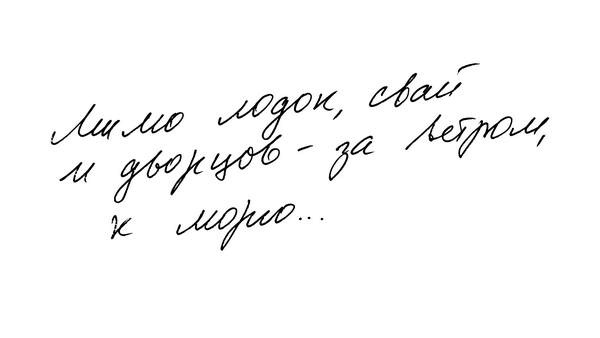 Мимо лодок, свай
и дворцов – за ветром,
к морю...